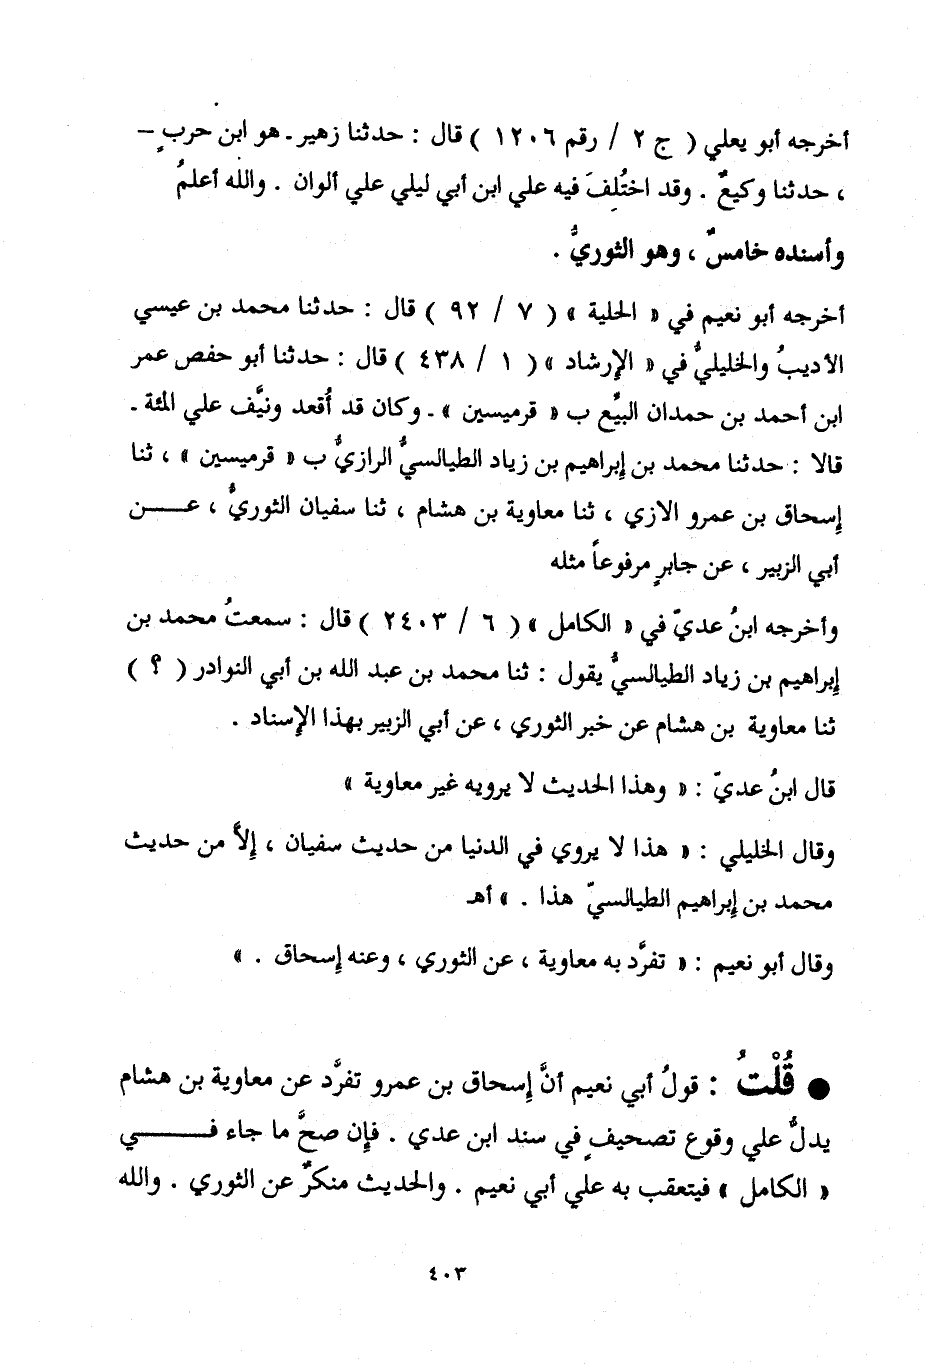 أخرجه أبو يعلي ( ج ٢ / رقم ١٢٠٦ ) قال : حدثنا زهير ـ هو ابن حربٍ –
، حدثنا وكيعٌ . وقد اختُلِفَ فيه علي ابن أبي ليلي علي ألوان . والله أعلمُ
وأسنده خامسٌ ، وهو الثوريُّ .
أخرجه أبو نعيم في « الحلية » ( ٧ / ٩٢ ) قال : حدثنا محمد بن عيسي
الأديبُ والخليليُّ في « الإرشاد » ( ١ / ٤٣٨ ) قال : حدثنا أبو حفص عمر
ابن أحمد بن حمدان البيِّع ب « قرميسين » ـ وكان قد أُقعد ونيَّف علي المئة ـ
قالا : حدثنا محمد بن إبراهيم بن زياد الطيالسيُّ الرازيُّ ب « قرميسين » ، ثنا
إسحاق بن عمرو الازي ، ثنا معاوية بن هشام ، ثنا سفيان الثوريُّ ، عــــن
أبي الزبير ، عن جابرٍ مرفوعاً مثله
وأخرجه ابنُ عديّ في « الكامل » ( ٦ / ٢٤٠٣ ) قال : سمعتُ محمد بن
إبراهيم بن زياد الطيالسيُّ يقول : ثنا محمد بن عبد الله بن أبي النوادر ( ؟ )
ثنا معاوية بن هشام عن خبر الثوري ، عن أبي الزبير بهذا الإسناد .
قال ابنُ عديّ : « وهذا الحديث لا يرويه غير معاوية »
وقال الخليلي : « هذا لا يروي في الدنيا من حديث سفيان ، إلاَّ من حديث
محمد بن إبراهيم الطيالسيّ هذا . » أهـ
وقال أبو نعيم : « تفرَّد به معاوية ، عن الثوري ، وعنه إسحاق . »
● قُلْتُ : قولُ أبي نعيم أنَّ إسحاق بن عمرو تفرَّد عن معاوية بن هشام
يدلُّ علي وقوع تصحيفٍ في سند ابن عدي . فإن صحَّ ما جاء فــــــي
« الكامل » فيتعقب به علي أبي نعيم . والحديث منكرٌ عن الثوري . والله
٤٠٣